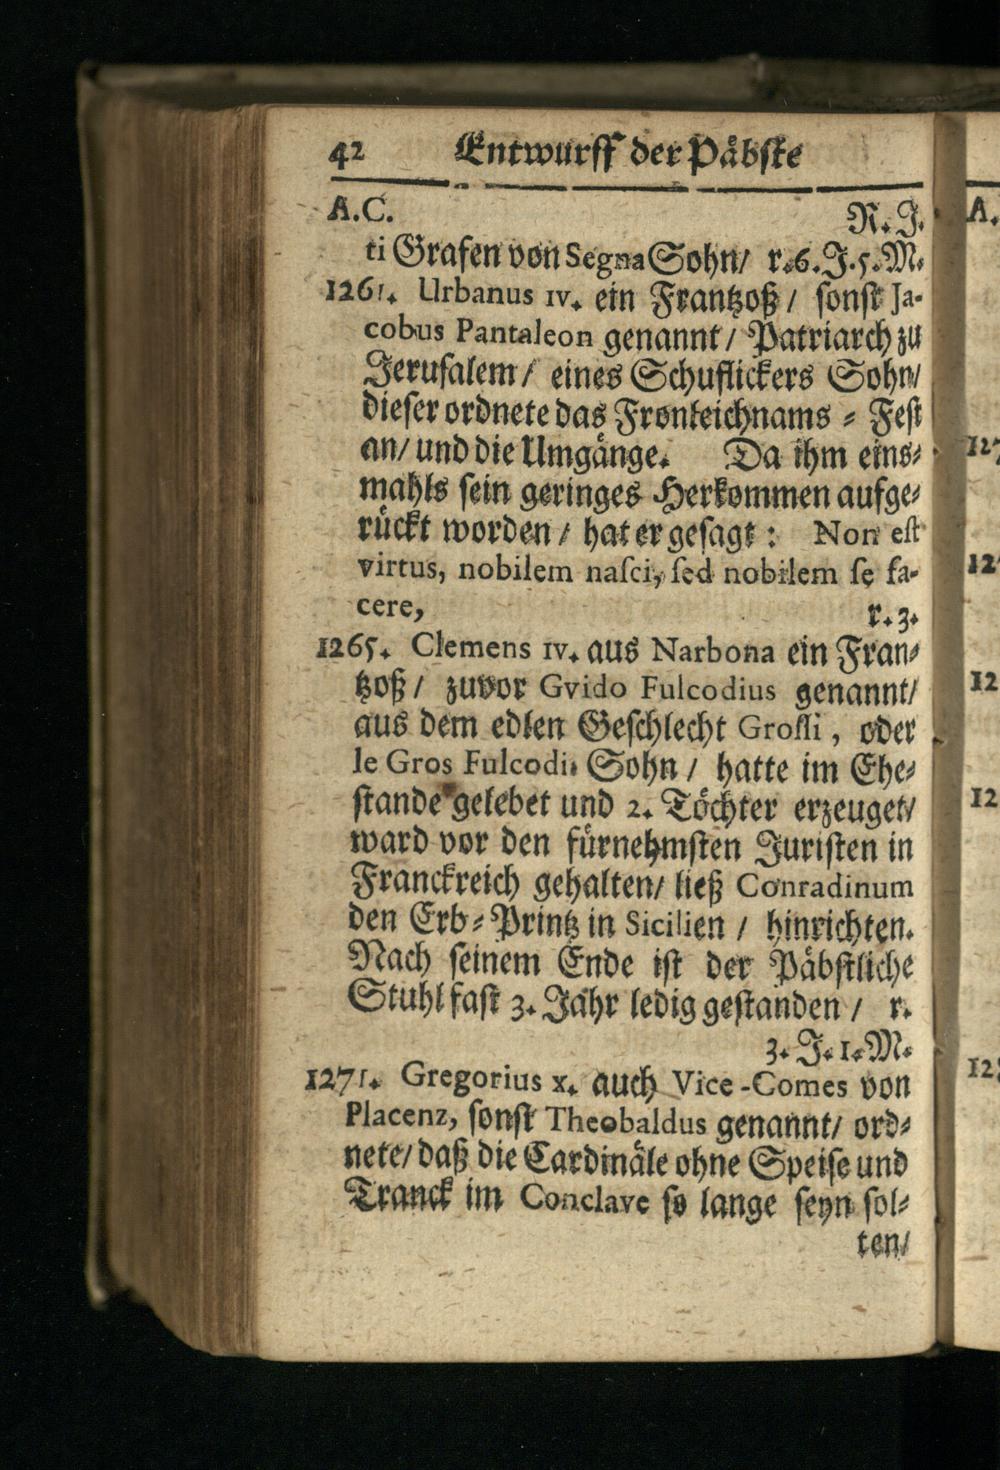 42 Entwurff der Päbste
A.C. R. J.
ti Grafen von Segna Sohn/ r. 6. J. 5. M.
1261. Urbanus IV. ein Frantzoß / sonst Ja-
cobus Pantaleon genannt / Patriarch zu
Jerusalem / eines Schuflickers Sohn/
dieser ordnete das Fronleichnams - Fest
an/ und die Umgänge. Da ihm eins-
mahls sein geringes Herkommen aufge-
rückt worden / hat er gesagt: Non est
virtus, nobilem nasci, sed nobilem se fa-
cere, r. 3.
1265. Clemens IV. aus Narbona ein Fran-
tzoß / zuvor Gvido Fulcodius genannt/
aus dem edlen Geschlecht Grossi, oder
le Gros Fulcodii Sohn / hatte im Ehe-
stande gelebet und 2. Töchter erzeuget/
ward vor den fürnehmsten Juristen in
Franckreich gehalten/ ließ Conradinum
den Erb-Printz in Sicilien / hinrichten.
Nach seinem Ende ist der Päbstliche
Stuhl fast 3. Jahr ledig gestanden / r.
3. J. 1. M.
1271. Gregorius X. auch Vice-Comes von
Placenz, sonst Theobaldus genannt/ ord-
nete/ daß die Cardinäle ohne Speise und
Tranck im Conclave so lange seyn sol-
ten/
A.
127
12
12
12
12